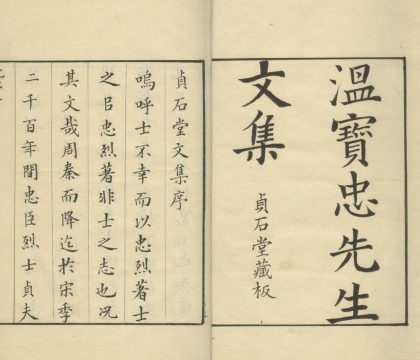 溫寶忠先生
文集
貞石堂藏板
貞石堂文集序
嗚呼士不幸而以忠烈著士
之㠯忠烈著非士之志也况
其文哉周秦而降迄於宋季
二千百年間忠臣烈士貞夫